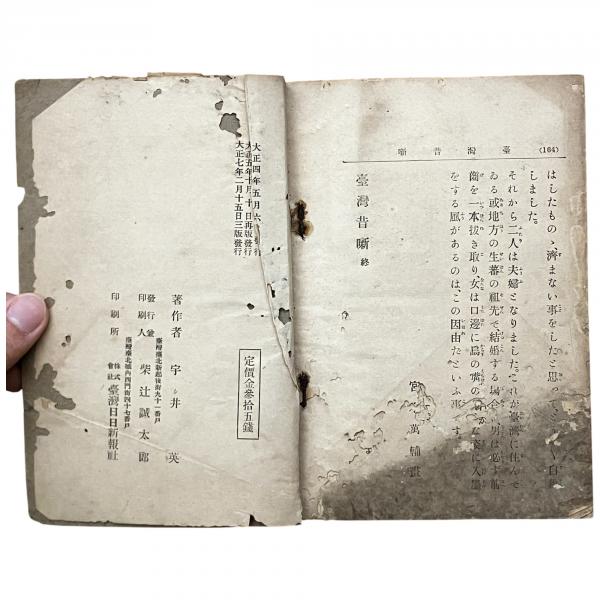 (164)
臺灣昔噺
はしたものゝ、濟まない事をしたと思つ
しました。
それから二人は夫婦となりました。これが臺灣に住んで
ゐる或地方の生蕃の祖先で結婚する場合、男は必ず前
齒を一本拔き取り、女は口邊に鳥の嘴の
をする風があるのは、この因由だといふ事です。
臺灣昔噺 終
宮 萬輔畫
大正四年五月六 發行
大正五年十月十日再版發行
大正七年二月十五日三版發行
定價金參拾五錢
著作者 宇井英
臺灣臺北新起後街九十一番戶
發行兼
印刷人 柴辻誠太郎
臺灣臺北城內西門街四十七番戶
印刷所 株式會社 臺灣日日新報社